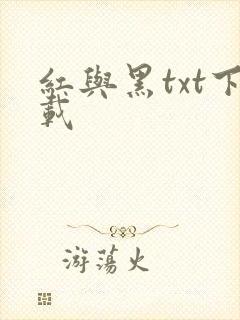 紅與黑txt下
載
游蕩火